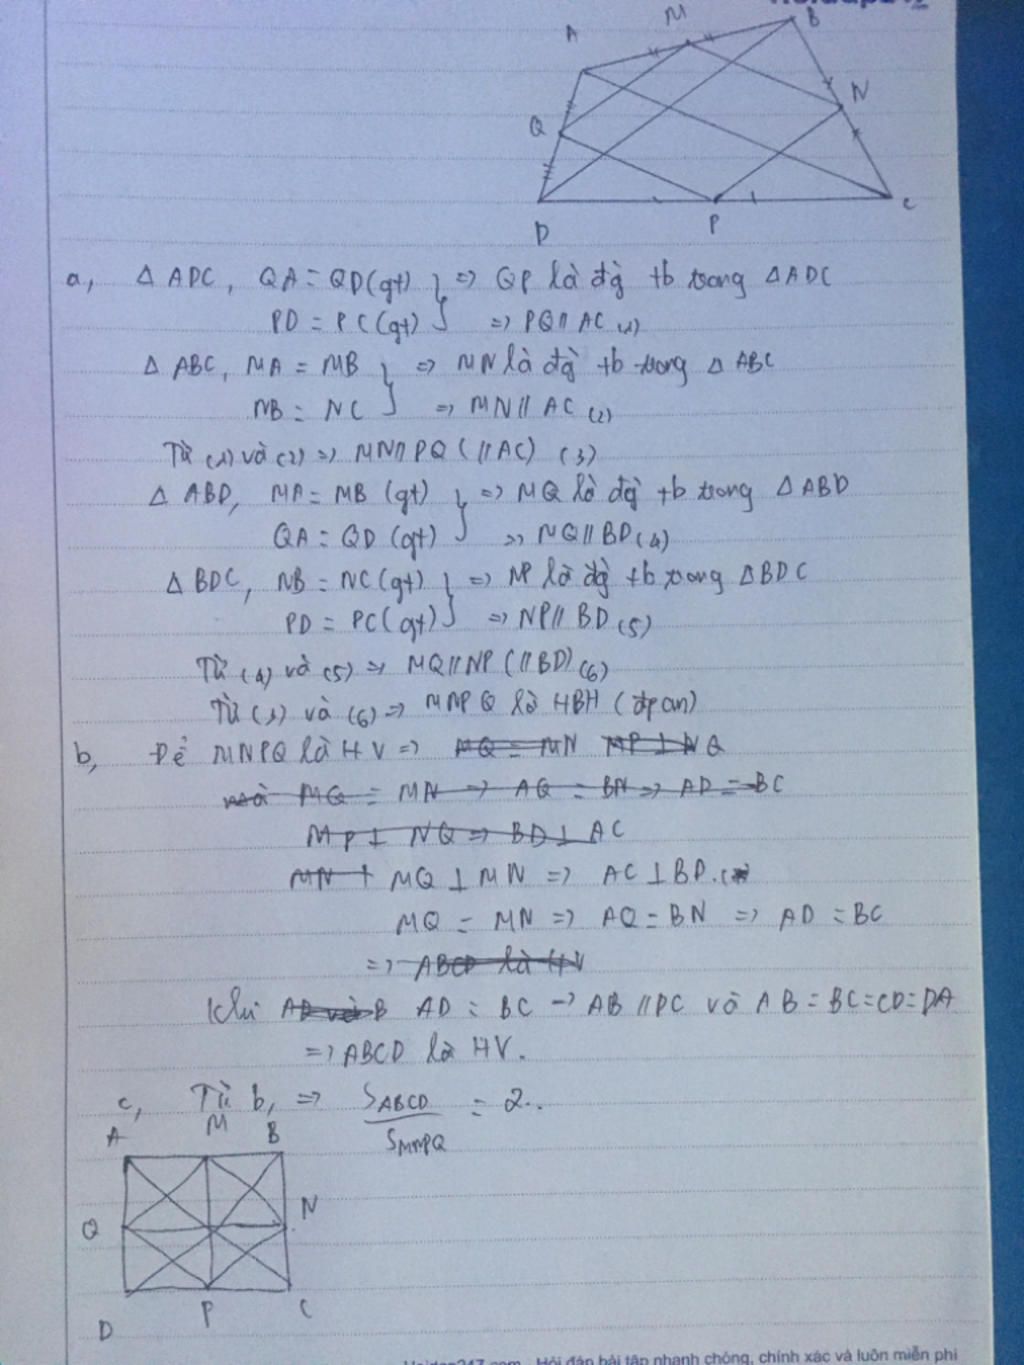 M
B
A
N
Q
D
P
C
a, Δ ADC, QA = QD (gt) } => QP là đg tb trong Δ ADC
PD = PC (gt) } => PQ // AC (1)
Δ ABC, MA = MB } => MN là đg tb trong Δ ABC
NB = NC } => MN // AC (2)
Từ (1) và (2) => MN // PQ (// AC) (3)
Δ ABD, MA = MB (gt) } => MQ là đg tb trong Δ ABD
QA = QD (gt) } => MQ // BD (4)
Δ BDC, NB = NC (gt) } => NP là đg tb trong Δ BDC
PD = PC (gt) } => NP // BD (5)
Từ (4) và (5) => MQ // NP (// BD) (6)
Từ (3) và (6) => MNPQ là HBH (đpcm)
b, Để MNPQ là HV => MQ = MN MP ⊥ NQ
mà MQ = MN => AQ = BN => AD = BC
MP ⊥ NQ => BD ⊥ AC
MN ⊥ MQ ⊥ MN => AC ⊥ BD.
MQ = MN => AQ = BN => AD = BC
=> ABCD là HV
Khi AD và B AD = BC -> AB // DC và AB = BC = CD = DA
=> ABCD là HV.
c, Từ b, => S ABCD / S MNPQ = 2.
A M B
Q N
D P C
Hỏi đáp bài tập nhanh chóng, chính xác và luôn miễn phí